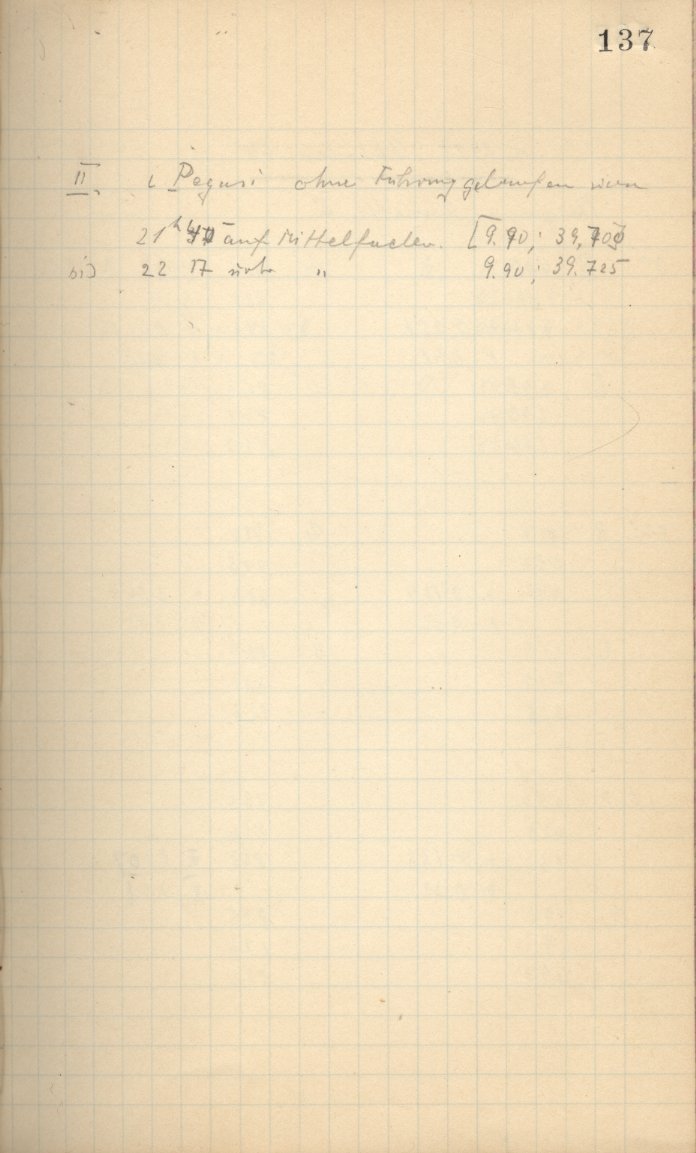 137
II. ι Pegasi ohne Führung gelaufen von
21h 47 auf Mittelfaden. [9.90; 39,70]
bis 22 17 " 9.90; 39.725